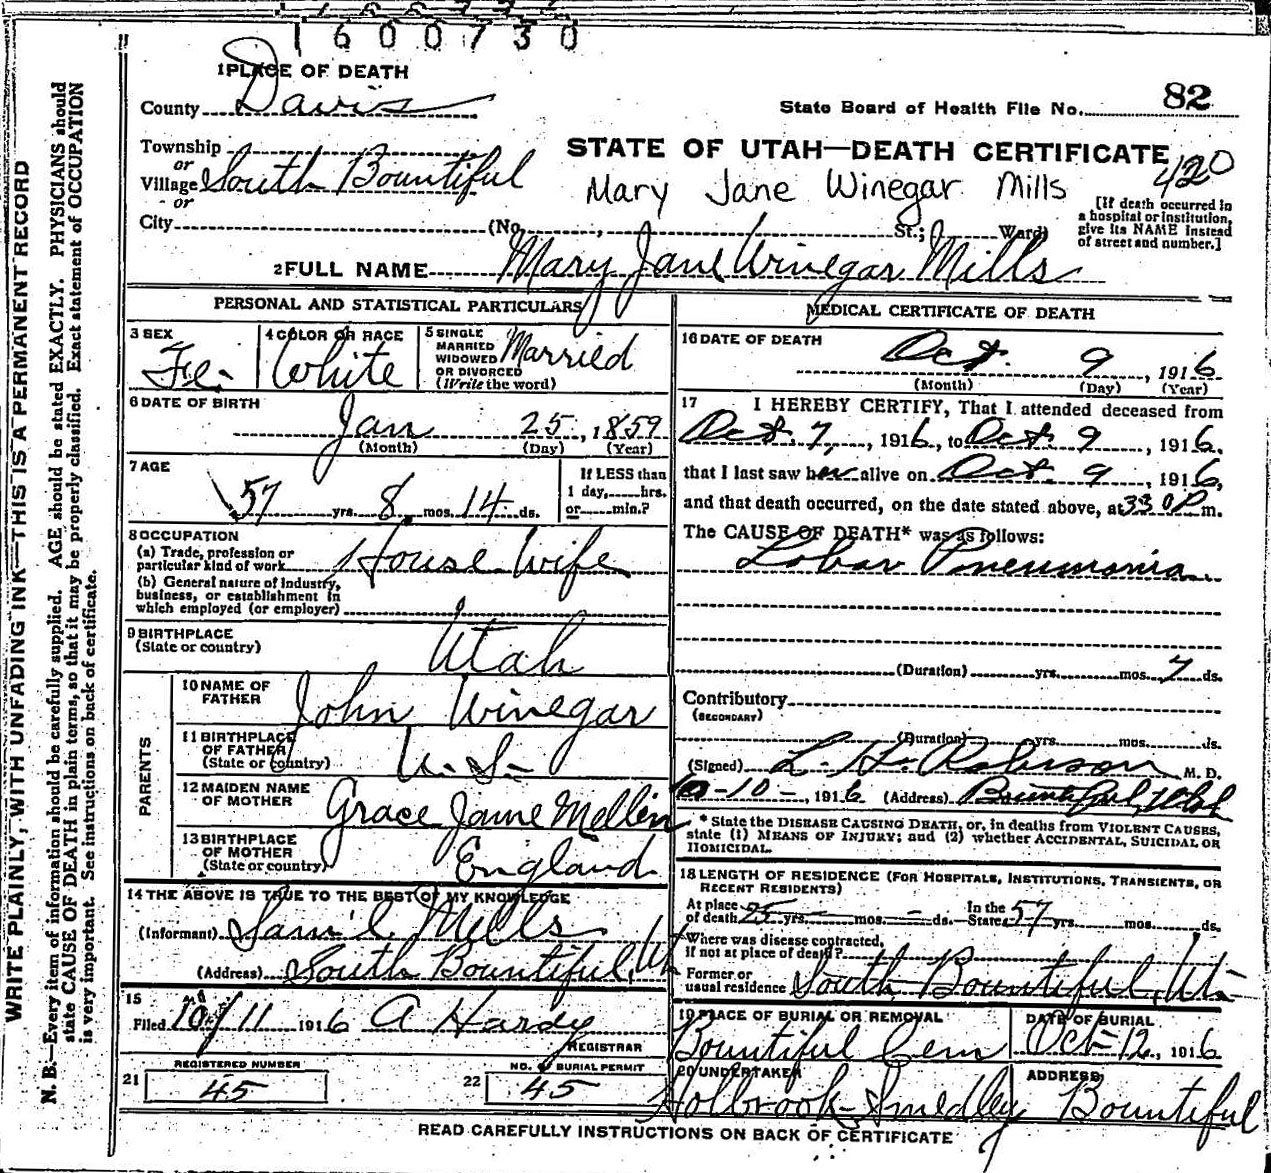 1600730
1 PLACE OF DEATH
County Davis
State Board of Health File No. 82
Township
or
Village South Bountiful
or
City (No. , St.; Ward)
STATE OF UTAH—DEATH CERTIFICATE
420
Mary Jane Winegar Mills
[If death occurred in
a hospital or institution,
give its NAME instead
of street and number.]
2 FULL NAME Mary Jane Winegar Mills
PERSONAL AND STATISTICAL PARTICULARS
3 SEX
Fe.
4 COLOR OR RACE
White
5 SINGLE
MARRIED
WIDOWED
OR DIVORCED
(Write the word)
Married
6 DATE OF BIRTH
Jan 25, 1859
(Month) (Day) (Year)
7 AGE
57 yrs. 8 mos. 14 ds.
If LESS than
1 day, hrs.
or min.?
8 OCCUPATION
(a) Trade, profession or
particular kind of work House Wife
(b) General nature of industry,
business, or establishment in
which employed (or employer)
9 BIRTHPLACE
(State or country)
Utah
PARENTS
10 NAME OF
FATHER
John Winegar
11 BIRTHPLACE
OF FATHER
(State or country)
U. S.
12 MAIDEN NAME
OF MOTHER
Grace Jane Mellin
13 BIRTHPLACE
OF MOTHER
(State or country)
England
14 THE ABOVE IS TRUE TO THE BEST OF MY KNOWLEDGE
(Informant) Sam'l Mills
(Address) South Bountiful, Ut
15
Filed 10/11 1916 A Hardy
REGISTRAR
REGISTERED NUMBER
21 45
NO. BURIAL PERMIT
22 45
MEDICAL CERTIFICATE OF DEATH
16 DATE OF DEATH
Oct. 9, 1916
(Month) (Day) (Year)
17 I HEREBY CERTIFY, That I attended deceased from
Oct. 7, 1916, to Oct. 9, 1916.
that I last saw her alive on Oct. 9, 1916,
and that death occurred, on the date stated above, at 330 P m.
The CAUSE OF DEATH* was as follows:
Lobar Pneumonia.
(Duration) yrs. mos. 7 ds.
Contributory
(SECONDARY)
(Duration) yrs. mos. ds.
(Signed) L. H. Robison M. D.
10-10-, 1916 (Address) Bountiful, Utah
* State the DISEASE CAUSING DEATH, or, in deaths from VIOLENT CAUSES,
state (1) MEANS OF INJURY; and (2) whether ACCIDENTAL, SUICIDAL OR
HOMICIDAL.
18 LENGTH OF RESIDENCE (FOR HOSPITALS, INSTITUTIONS, TRANSIENTS, OR
RECENT RESIDENTS)
At place
of death 25 yrs. - mos. - ds. In the State 57 yrs. mos. ds.
Where was disease contracted,
if not at place of death?
Former or
usual residence South Bountiful, Ut-
19 PLACE OF BURIAL OR REMOVAL
Bountiful Cem
DATE OF BURIAL
Oct-12, 1916
20 UNDERTAKER
Holbrook-Smedley
ADDRESS
Bountiful
READ CAREFULLY INSTRUCTIONS ON BACK OF CERTIFICATE
WRITE PLAINLY, WITH UNFADING INK—THIS IS A PERMANENT RECORD
N. B.—Every item of information should be carefully supplied. AGE should be stated EXACTLY. PHYSICIANS should
state CAUSE OF DEATH in plain terms, so that it may be properly classified. Exact statement of OCCUPATION
is very important. See instructions on back of certificate.